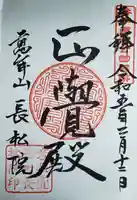 奉拝 令和五年 月十二日
正覺殿
萬年山 長松院